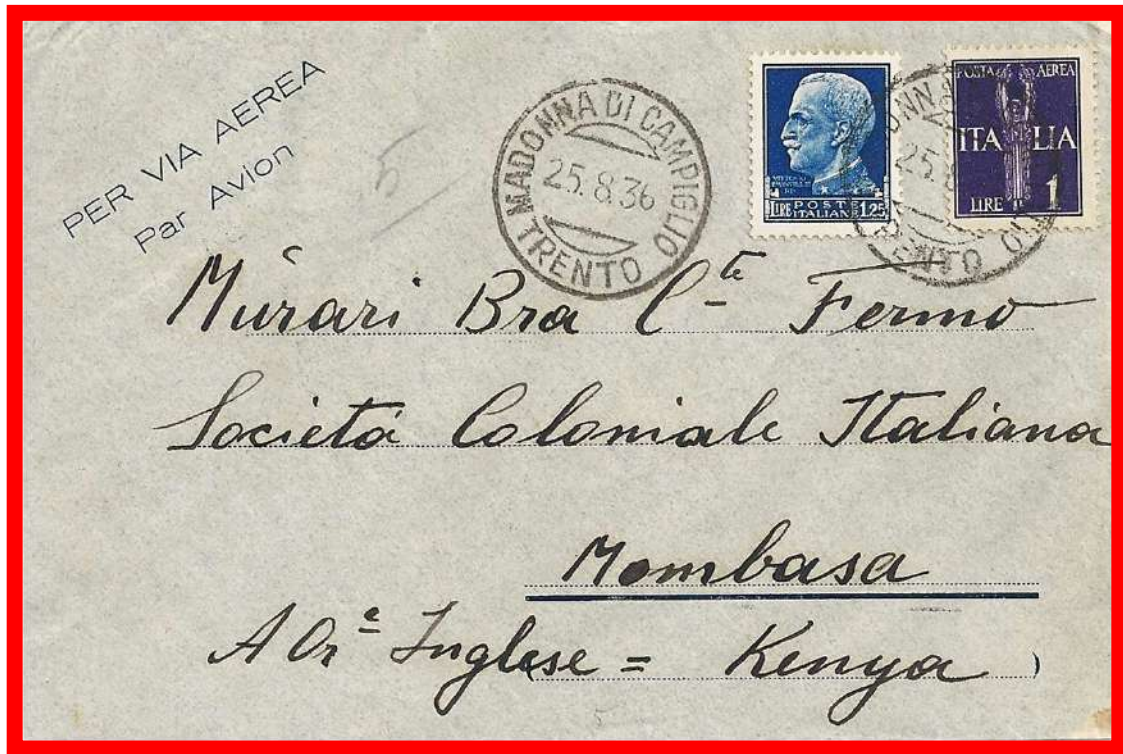 PER VIA AEREA
Par Avion
5
MADONNA DI CAMPIGLIO
25.8.36
TRENTO
VITTORIO EMANUELE III RE
LIRE POSTE ITALIANE 1.25
POSTA AEREA
ITALIA
LIRE 1
25.
TRENTO
Murari Bra C.te Fermo
Società Coloniale Italiana
Mombasa
A Or.e Inglese = Kenya